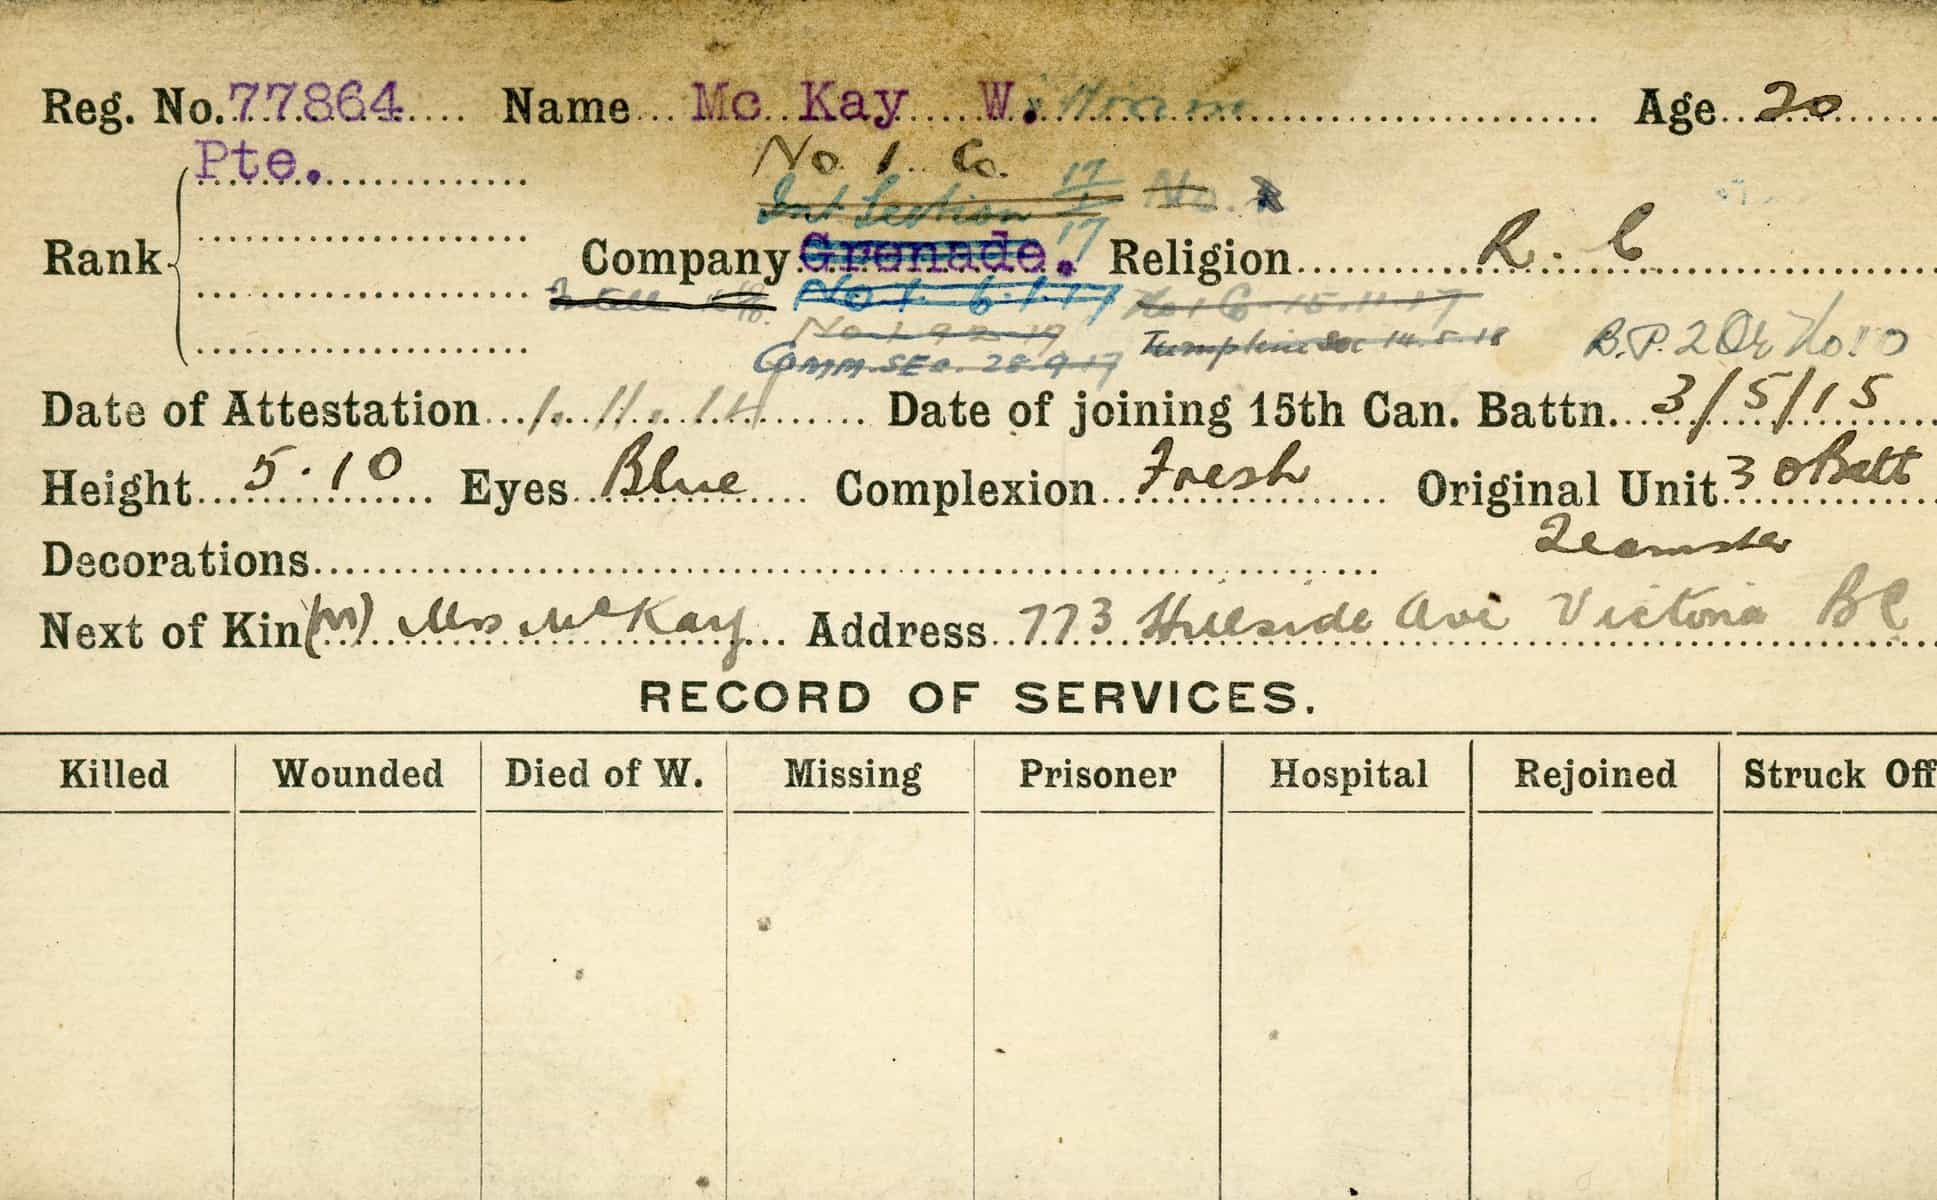 Reg. No. 77864 Name Mc Kay W. Age 20
Pte. No. 1. Co.
Int Section 17/1/17 No.
Rank Company Grenade. Religion R. C.
No 1. 6.1.17 No 1 C 15.11.17
No 1 9 2 17 Tumpline Sec 14.5.18 B.P. 2
Comm. Sec. 28.9.17
Date of Attestation 1.11.14 Date of joining 15th Can. Battn. 3/5/15
Height 5.10 Eyes Blue Complexion Fresh Original Unit 30 Batt
Decorations Teamster
Next of Kin (M) Mrs McKay Address 773 Hillside Ave Victoria BC
RECORD OF SERVICES.
Killed Wounded Died of W. Missing Prisoner Hospital Rejoined Struck Off